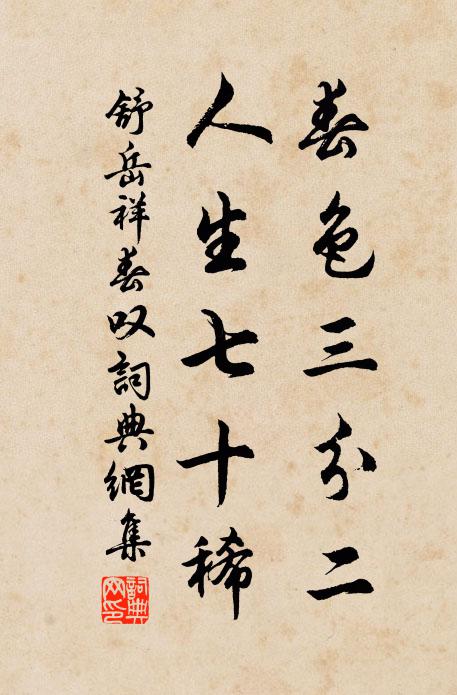 春色三分二
人生七十稀
舒岳祥春叹詞典網集
詞典網印